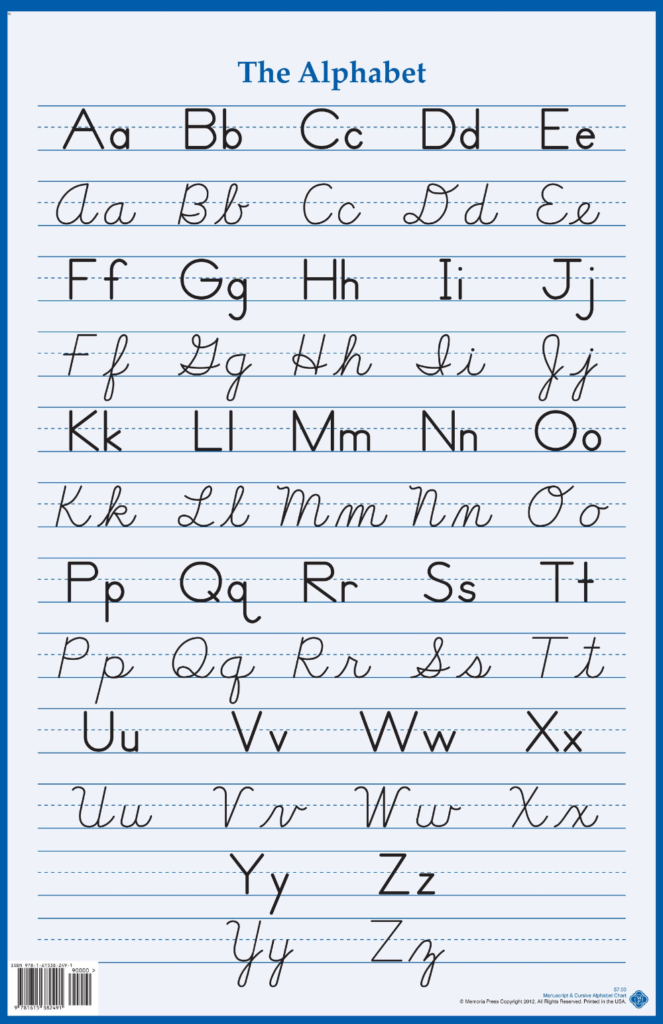 The Alphabet
Aa Bb Cc Dd Ee
Aa Bb Cc Dd Ee
Ff Gg Hh Ii Jj
Ff Gg Hh Ii Jj
Kk Ll Mm Nn Oo
Kk Ll Mm Nn Oo
Pp Qq Rr Ss Tt
Pp Qq Rr Ss Tt
Uu Vv Ww Xx
Uu Vv Ww Xx
Yy Zz
Yy Zz
ISBN 978-1-61538-249-1
90000 >
9 781615 382491
$7.00
Manuscript & Cursive Alphabet Chart
© Memoria Press Copyright 2012. All Rights Reserved. Printed in the USA.